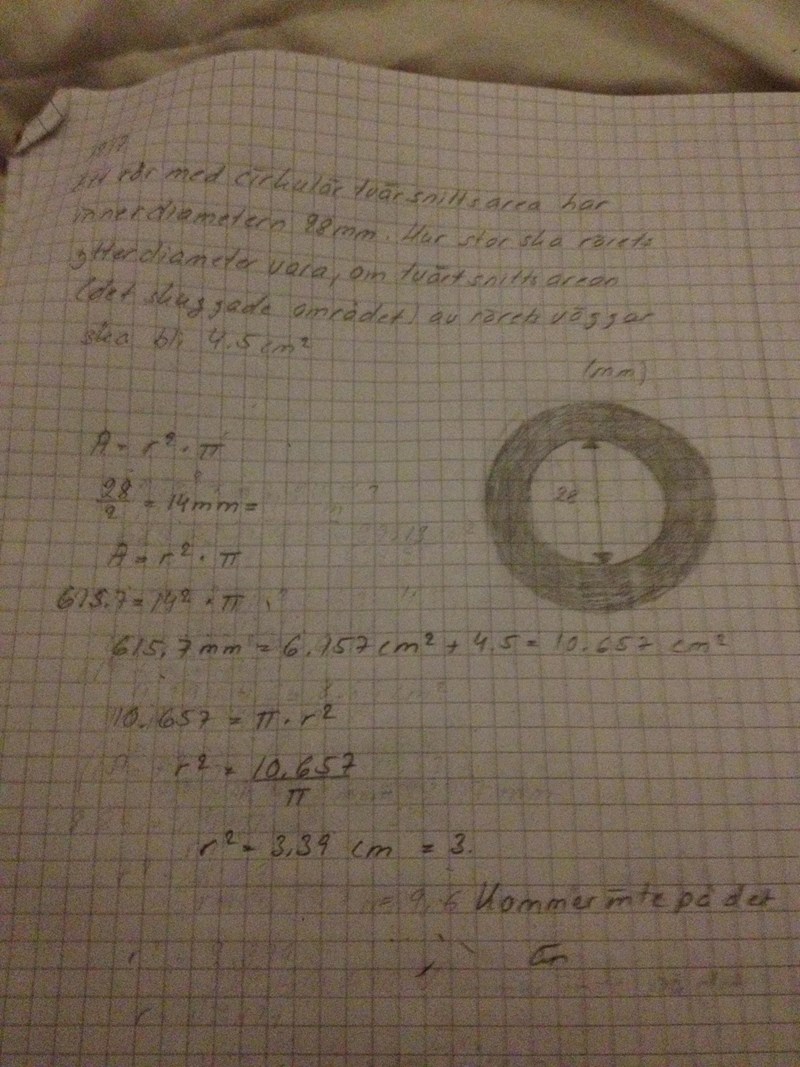 rör med cirkulär tvärsnittsarea har
innerdiametern 28mm. Hur stor ska rörets
ytterdiameter vara, om tvärtsnittsarean
(det skuggade området) av rörets väggar
ska bli 4.5 cm²
(mm)
28
A = r² · π
28/2 = 14mm =
A = r² · π
615.7 = 14² · π
615,7 mm = 6.157 cm² + 4.5 = 10.657 cm²
10.657 = π · r²
r² = 10.657/π
r² = 3,39 cm = 3.
= 9,6 Kommer inte på det